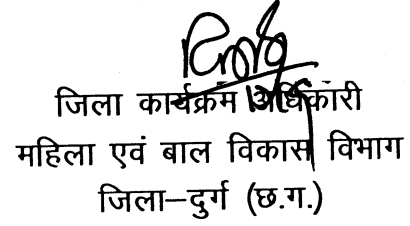 जिला कार्यक्रम अधिकारी
महिला एवं बाल विकास विभाग
जिला–दुर्ग (छ.ग.)